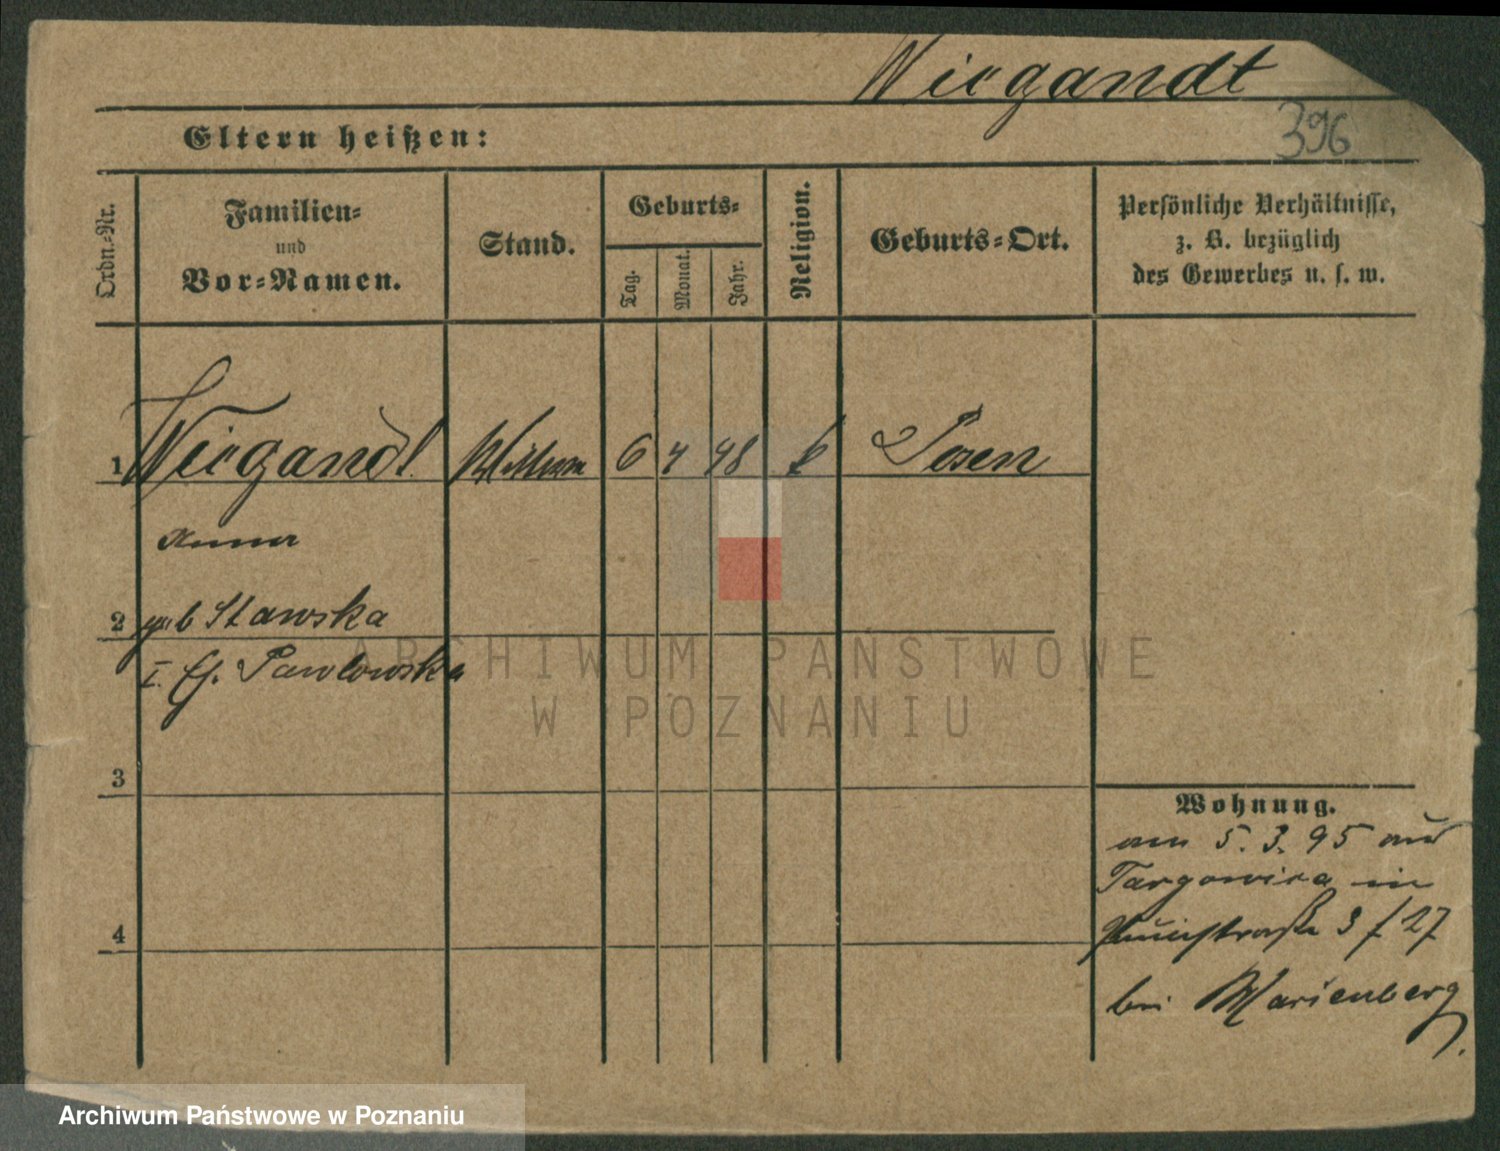 Wiegandt
396
Eltern heißen:
Ordn.-Nr.
Familien-
und
Vor-Namen.
Stand.
Geburts-
Tag.
Monat.
Jahr.
Religion.
Geburts-Ort.
Persönliche Verhältnisse,
z. B. bezüglich
des Gewerbes u. s. w.
1 Wiegandt Wittwe 6 4 48 k Posen
Anna
2 geb Stawska
I. Eh. Pawlowska
3
4
Wohnung.
am 5. 3. 95 aus
Targowica in
3 / 27
bei Marienberg.
ARCHIWUM PAŃSTWOWE
W POZNANIU
Archiwum Państwowe w Poznaniu